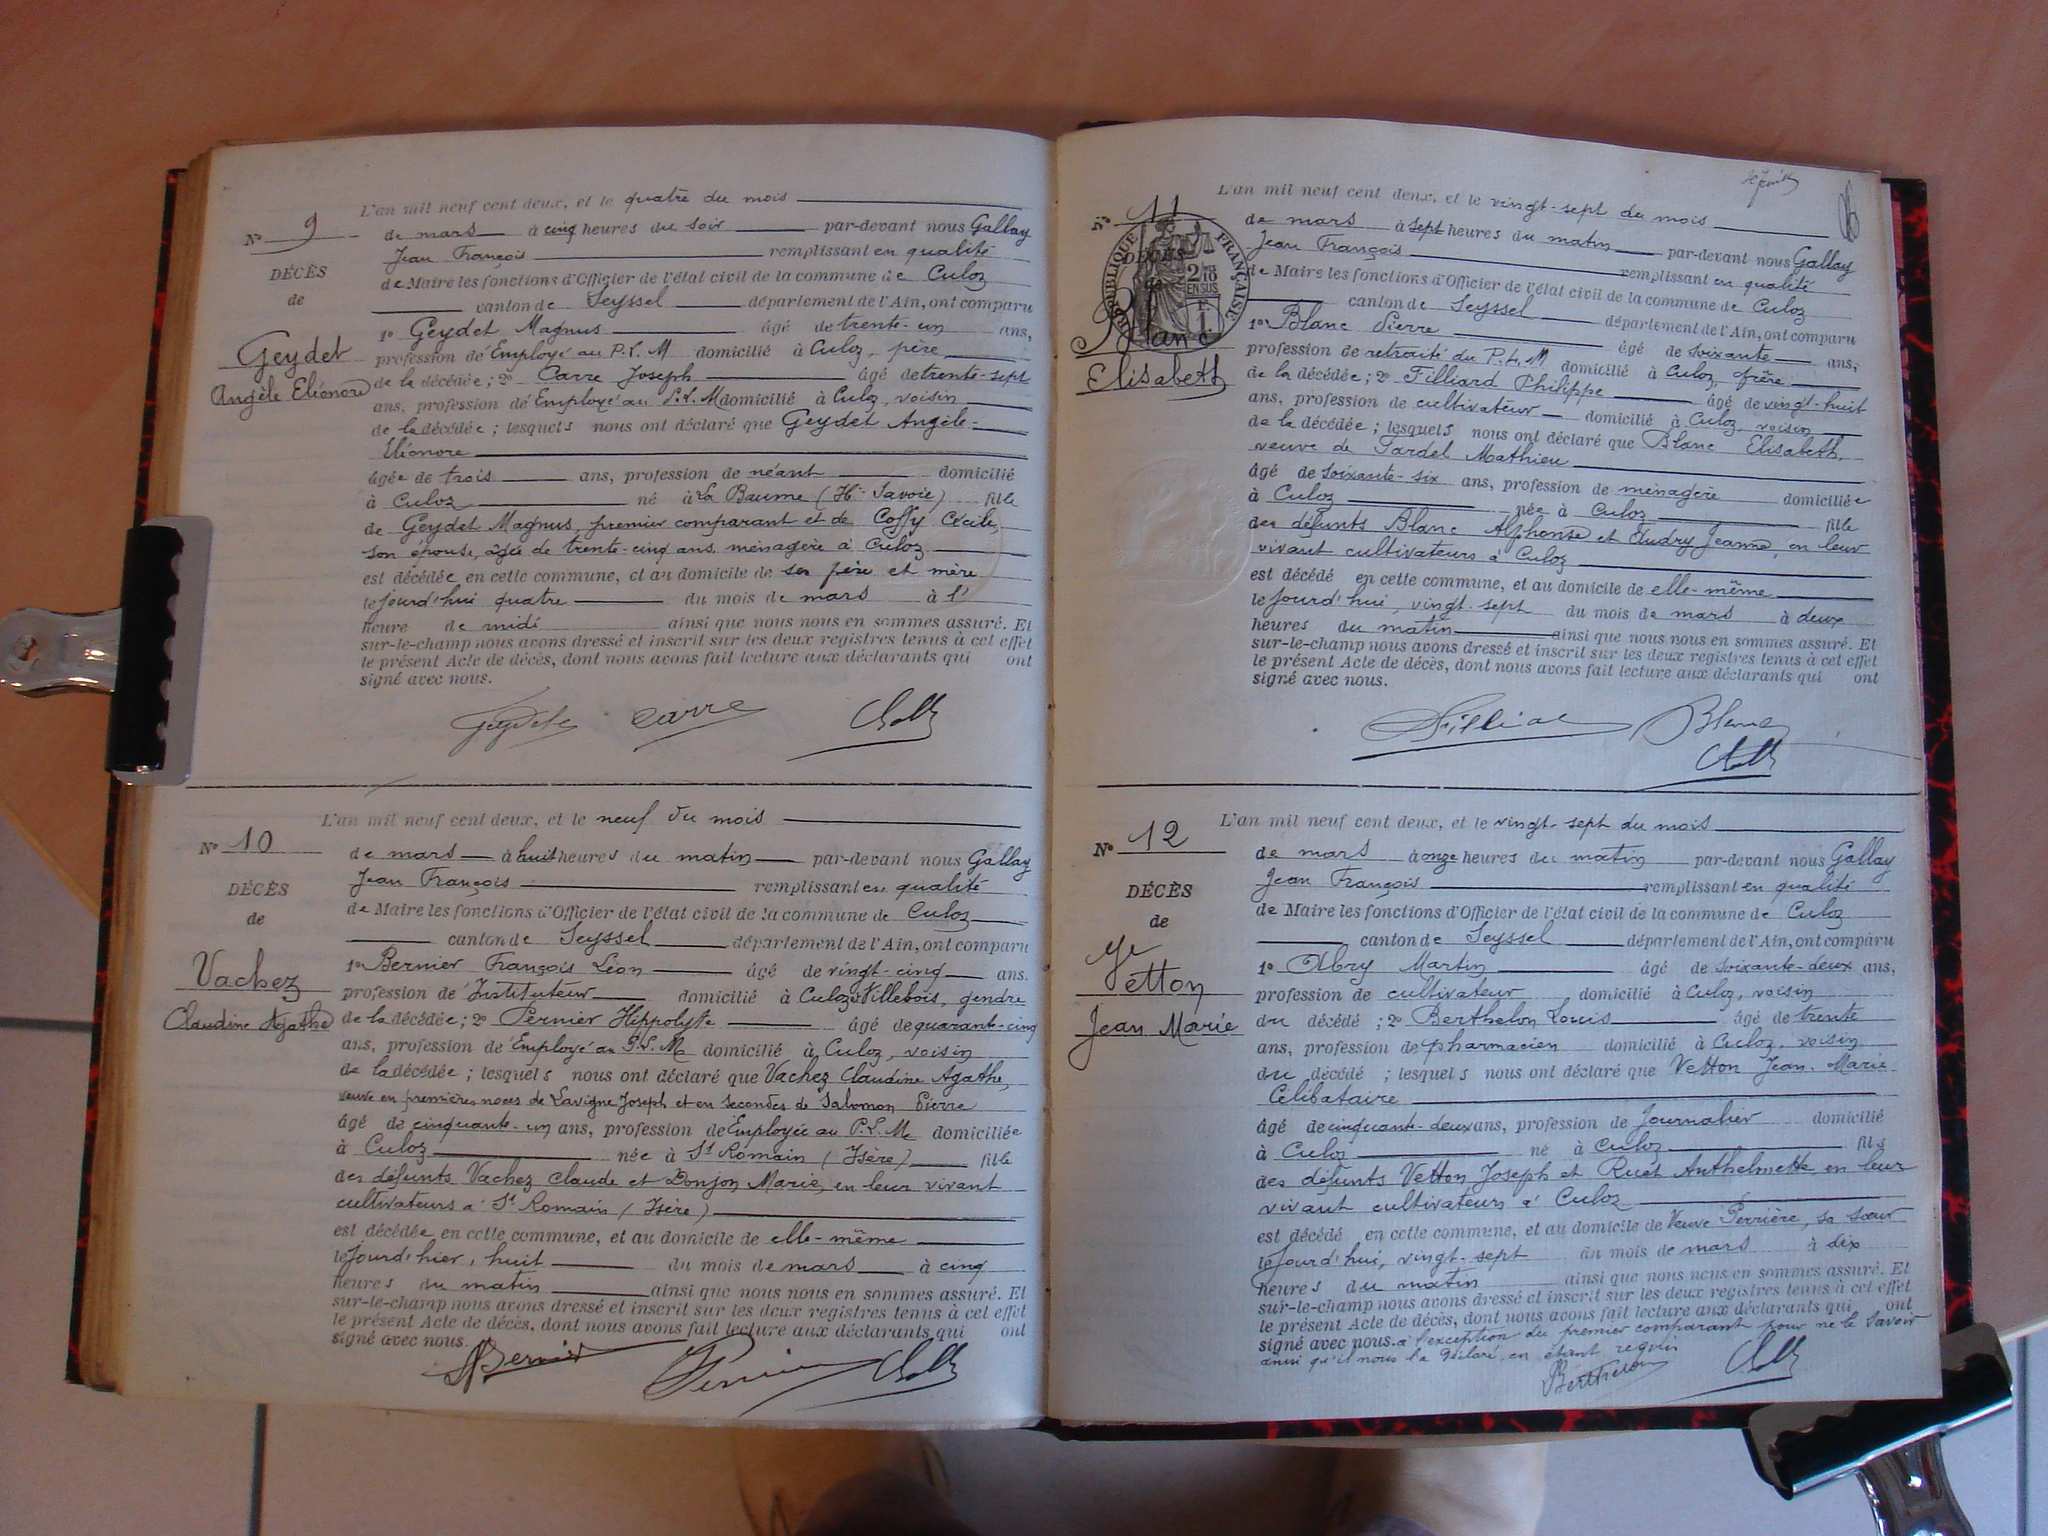 L'an mil neuf cent deux, et le quatre du mois
No 9
de mars à cinq heures du soir par-devant nous Gallay
Jean François remplissant en qualité
DÉCÈS
de Maire les fonctions d'Officier de l'état civil de la commune de Culoz
de
canton de Seyssel département de l'Ain, ont comparu
1o Geydet Magnus âgé de trente-un ans,
Geydet
profession d'Employé au P.L.M domicilié à Culoz, père
Angèle Eléonore
de la décédée; 2o Carre Joseph âgé de trente-sept
ans, profession d'Employé au P.L.M domicilié à Culoz, voisin
de la décédée; lesquels nous ont déclaré que Geydet Angèle-
Eléonore
âgée de trois ans, profession de néant domicilié
à Culoz né à La Baume (Hte Savoie) fille
de Geydet Magnus, premier comparant et de Coffy Cécile,
son épouse, âgée de trente-cinq ans ménagère à Culoz
est décédée en cette commune, et au domicile de ses père et mère
le jourd'hui quatre du mois de mars à l'
heure de midi ainsi que nous nous en sommes assuré. Et
sur-le-champ nous avons dressé et inscrit sur les deux registres tenus à cet effet
le présent Acte de décès, dont nous avons fait lecture aux déclarants qui ont
signé avec nous.
Carre
L'an mil neuf cent deux, et le neuf du mois
No 10
de mars à huit heures du matin par-devant nous Gallay
Jean François remplissant en qualité
DÉCÈS
de Maire les fonctions d'Officier de l'état civil de la commune de Culoz
de
canton de Seyssel département de l'Ain, ont comparu
Vachez
1o Bernier François Léon âgé de vingt-cinq ans.
profession d'Instituteur domicilié à Culoz Villebois, gendre
Claudine Agathe
de la décédée; 2o Pernier Hippolyte âgé de quarante-cinq
ans, profession d'Employé au P.L.M domicilié à Culoz, voisin
de la décédée; lesquels nous ont déclaré que Vachez Claudine Agathe,
veuve en premières noces de Lavigne Joseph et en secondes de Salomon Pierre
âgé de cinquante-un ans, profession de Employée au P.L.M domiciliée
à Culoz née à St Romain (Isère) fille
des défunts Vachez Claude et Donjon Marie, en leur vivant
cultivateurs à St Romain (Isère)
est décédée en cette commune, et au domicile de elle-même
le jourd'hier, huit du mois de mars à cinq
heures du matin ainsi que nous nous en sommes assuré. Et
sur-le-champ nous avons dressé et inscrit sur les deux registres tenus à cet effet
le présent Acte de décès, dont nous avons fait lecture aux déclarants qui ont
signé avec nous.
Bernier
L'an mil neuf cent deux, et le vingt-sept du mois
No 11
de mars à sept heures du matin par-devant nous Gallay
Jean François remplissant en qualité
DÉCÈS
RÉPUBLIQUE FRANÇAISE
de Maire les fonctions d'Officier de l'état civil de la commune de Culoz
canton de Seyssel département de l'Ain, ont comparu
Blanc
1o Blanc Pierre âgé de soixante ans,
Elisabeth
profession de retraité du P.L.M domicilié à Culoz, frère
de la décédée; 2o Filliard Philippe âgé de vingt-huit
ans, profession de cultivateur domicilié à Culoz, voisin
de la décédée; lesquels nous ont déclaré que Blanc Elisabeth,
veuve de Tardel Mathieu
âgé de soixante-six ans, profession de ménagère domiciliée
à Culoz née à Culoz fille
des défunts Blanc Alphonse et Audry Jeanne, en leur
vivant cultivateurs à Culoz
est décédé en cette commune, et au domicile de elle-même
le jourd'hui, vingt-sept du mois de mars à deux
heures du matin ainsi que nous nous en sommes assuré. Et
sur-le-champ nous avons dressé et inscrit sur les deux registres tenus à cet effet
le présent Acte de décès, dont nous avons fait lecture aux déclarants qui ont
signé avec nous.
Blanc
L'an mil neuf cent deux, et le vingt-sept du mois
No 12
de mars à onze heures du matin par-devant nous Gallay
Jean François remplissant en qualité
DÉCÈS
de Maire les fonctions d'Officier de l'état civil de la commune de Culoz
de
canton de Seyssel département de l'Ain, ont comparu
Vetton
1o Abry Martin âgé de soixante-deux ans,
profession de cultivateur domicilié à Culoz, voisin
Jean Marie
du décédé; 2o Berthelon Louis âgé de trente
ans, profession de pharmacien domicilié à Culoz, voisin
du décédé; lesquels nous ont déclaré que Vetton Jean-Marie
Célibataire
âgé de cinquante-deux ans, profession de Journalier domicilié
à Culoz né à Culoz fils
des défunts Vetton Joseph et Ruet Anthelmette en leur
vivant cultivateurs à Culoz
est décédé en cette commune, et au domicile de Veuve Perrière, sa sœur
le jourd'hui, vingt-sept du mois de mars à dix
heures du matin ainsi que nous nous en sommes assuré. Et
sur-le-champ nous avons dressé et inscrit sur les deux registres tenus à cet effet
le présent Acte de décès, dont nous avons fait lecture aux déclarants qui ont
signé avec nous. à l'exception du premier comparant pour ne le savoir
ainsi qu'il nous l'a déclaré, en étant requis
Berthelon